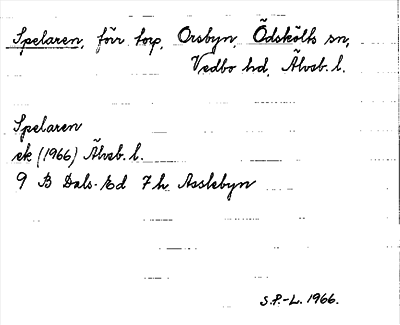 Spelaren, förr torp, Orsbyn, Ödskölts sn,
Vedbo hd, Älvsb. l.
Spelaren
ek (1966) Älvsb. l.
9 B Dals-Ed 7h Asslebyn
S.P.-L. 1966.